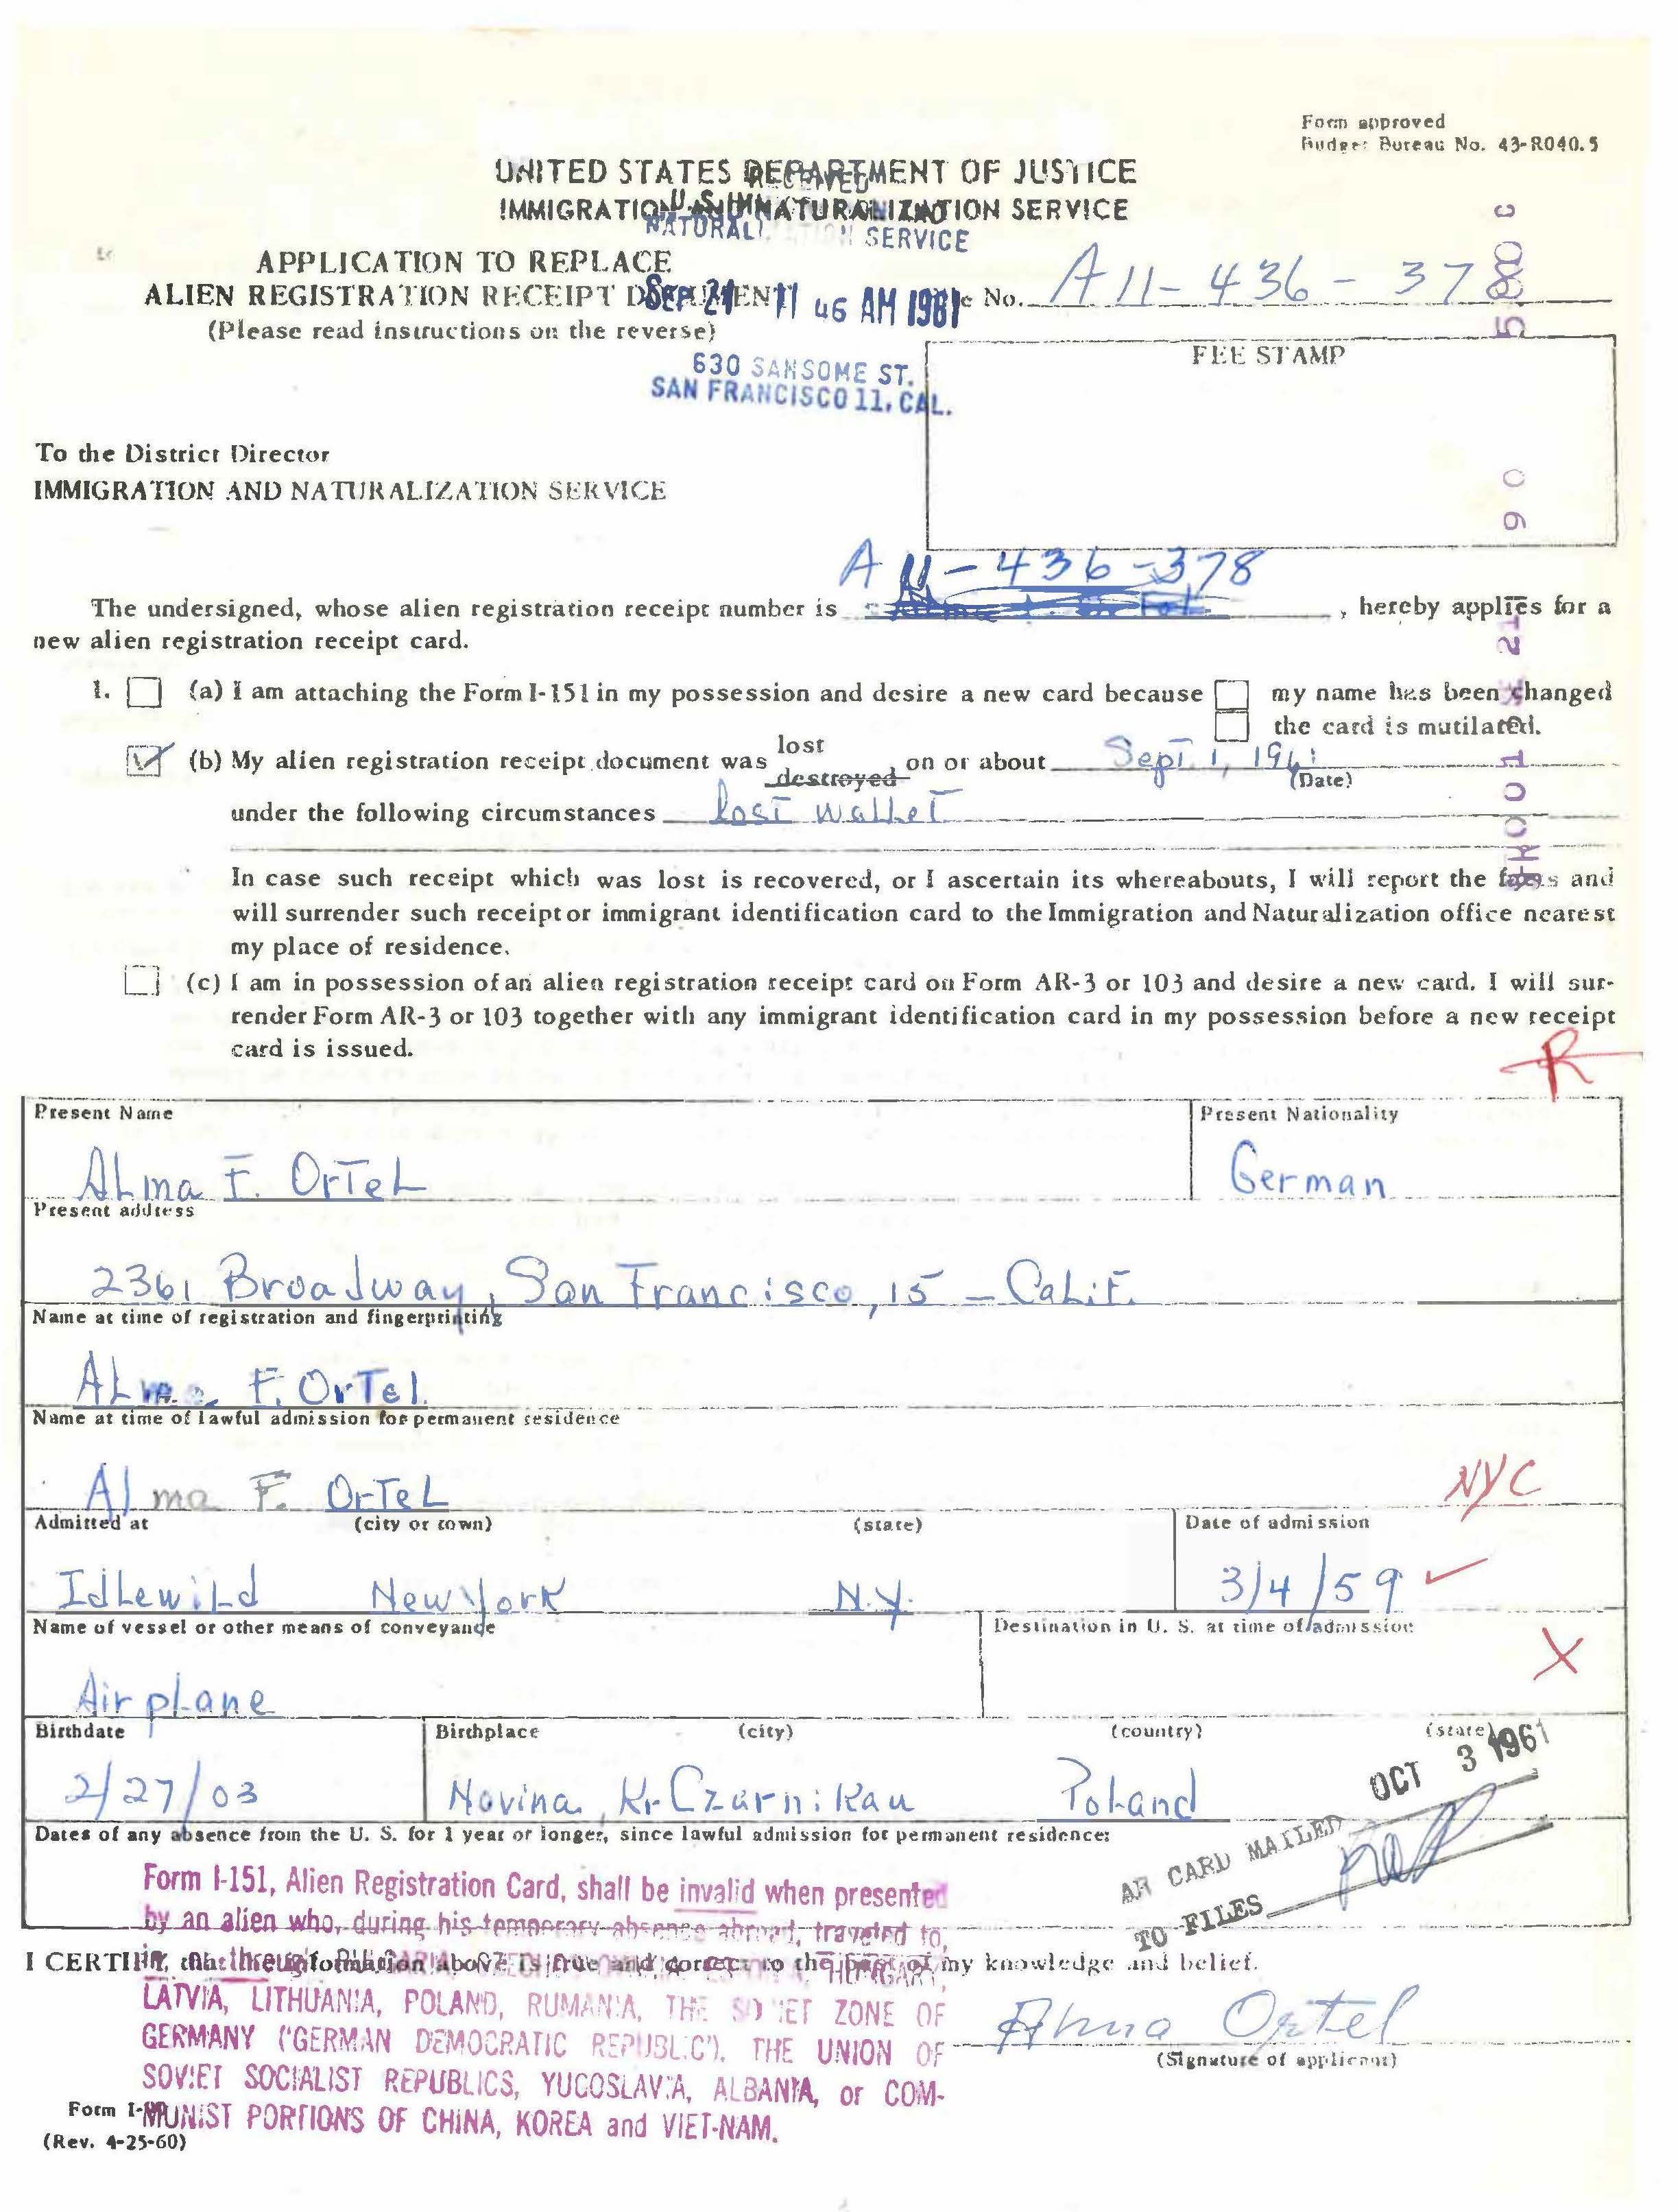 Form approved
Budget Bureau No. 43-R040.5
UNITED STATES DEPARTMENT OF JUSTICE
IMMIGRATION AND NATURALIZATION SERVICE
RECEIVED
U.S. IMM
NATURALIZATION SERVICE
APPLICATION TO REPLACE
ALIEN REGISTRATION RECEIPT DOCUMENT
(Please read instructions on the reverse)
SEP 21 11 46 AM 1961
No. A 11-436-378
630 SANSOME ST.
SAN FRANCISCO 11, CAL.
FEE STAMP
To the District Director
IMMIGRATION AND NATURALIZATION SERVICE
A 11-436-378
The undersigned, whose alien registration receipt number is , hereby applies for a
new alien registration receipt card.
1. (a) I am attaching the Form I-151 in my possession and desire a new card because my name has been changed
the card is mutilated.
(b) My alien registration receipt document was lost destroyed on or about Sept. 1, 1961
(Date)
under the following circumstances lost wallet
In case such receipt which was lost is recovered, or I ascertain its whereabouts, I will report the facts and
will surrender such receipt or immigrant identification card to the Immigration and Naturalization office nearest
my place of residence.
(c) I am in possession of an alien registration receipt card on Form AR-3 or 103 and desire a new card. I will sur-
render Form AR-3 or 103 together with any immigrant identification card in my possession before a new receipt
card is issued.
R
Present Name
Present Nationality
ALma F. OrTeL
German
Present address
2361 Broadway, San Francisco, 15 - CaLiF.
Name at time of registration and fingerprinting
ALma F. OrTel
Name at time of lawful admission for permanent residence
Alma F. OrTeL
NYC
Admitted at (city or town) (state) Date of admission
IdLewiLd New York N.Y. 3/4/59
Name of vessel or other means of conveyance
Destination in U. S. at time of admission
X
AirpLane
Birthdate Birthplace (city) (country) (state)
2/27/03 Novina, Kr. Czarnikau PoLand
OCT 3 1961
AR CARD MAILED
TO FILES
Dates of any absence from the U. S. for 1 year or longer, since lawful admission for permanent residence:
Form I-151, Alien Registration Card, shall be invalid when presented
by an alien who, during his temporary absence abroad, traveled to,
in, or through BULGARIA, HUNGARY,
I CERTIFY that the information above is true and correct to the best of my knowledge and belief.
LATVIA, LITHUANIA, POLAND, RUMANIA, THE SOVIET ZONE OF
GERMANY ("GERMAN DEMOCRATIC REPUBLIC"), THE UNION OF
SOVIET SOCIALIST REPUBLICS, YUGOSLAVIA, ALBANIA, or COM-
MUNIST PORTIONS OF CHINA, KOREA and VIET-NAM.
Alma Ortel
(Signature of applicant)
Form I-90
(Rev. 4-25-60)